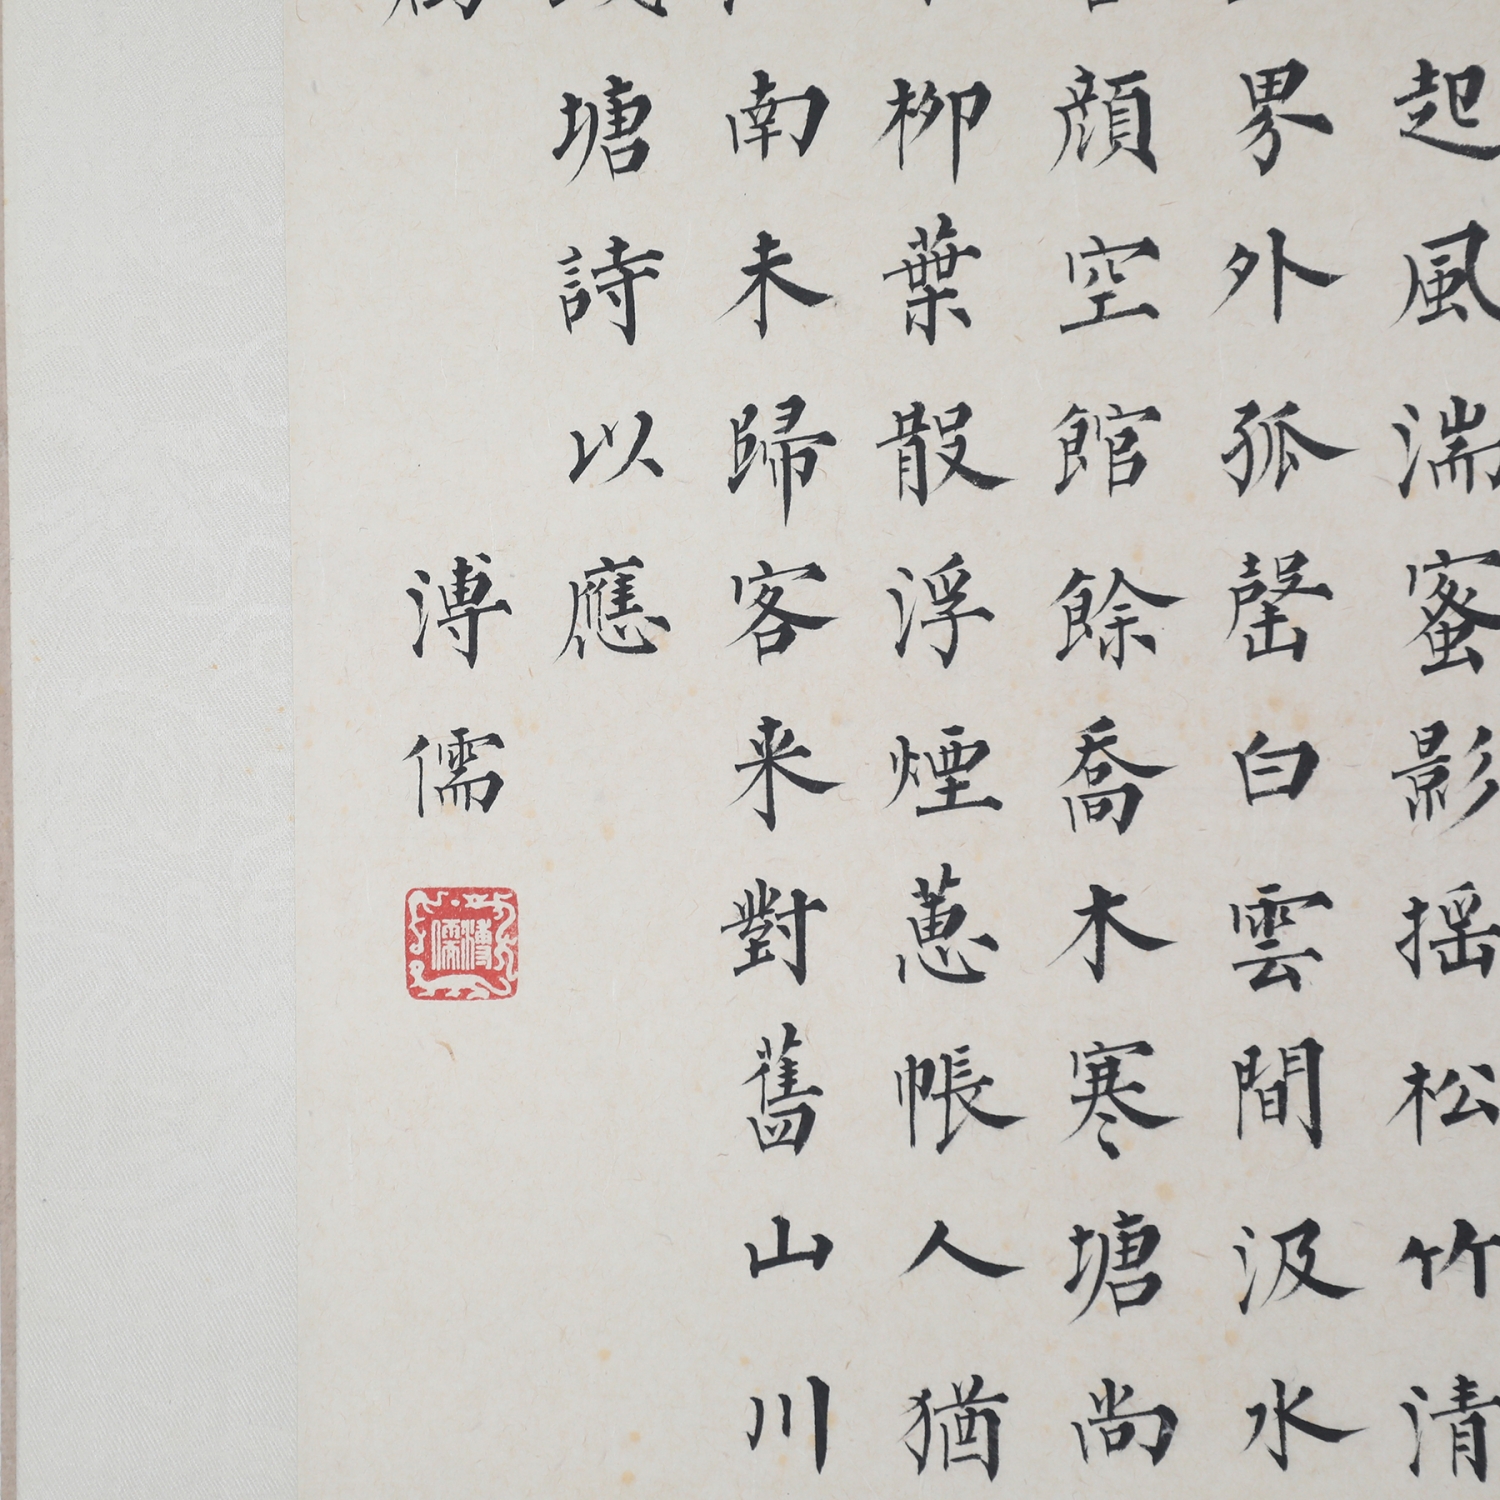 起風湍蜜影揺松竹清
界外孤罄白雲間汲水
顏空館餘喬木寒塘尚
柳葉散浮煙蕙帳人猶
南未歸客来對舊山川
塘詩以應
溥儒
溥儒